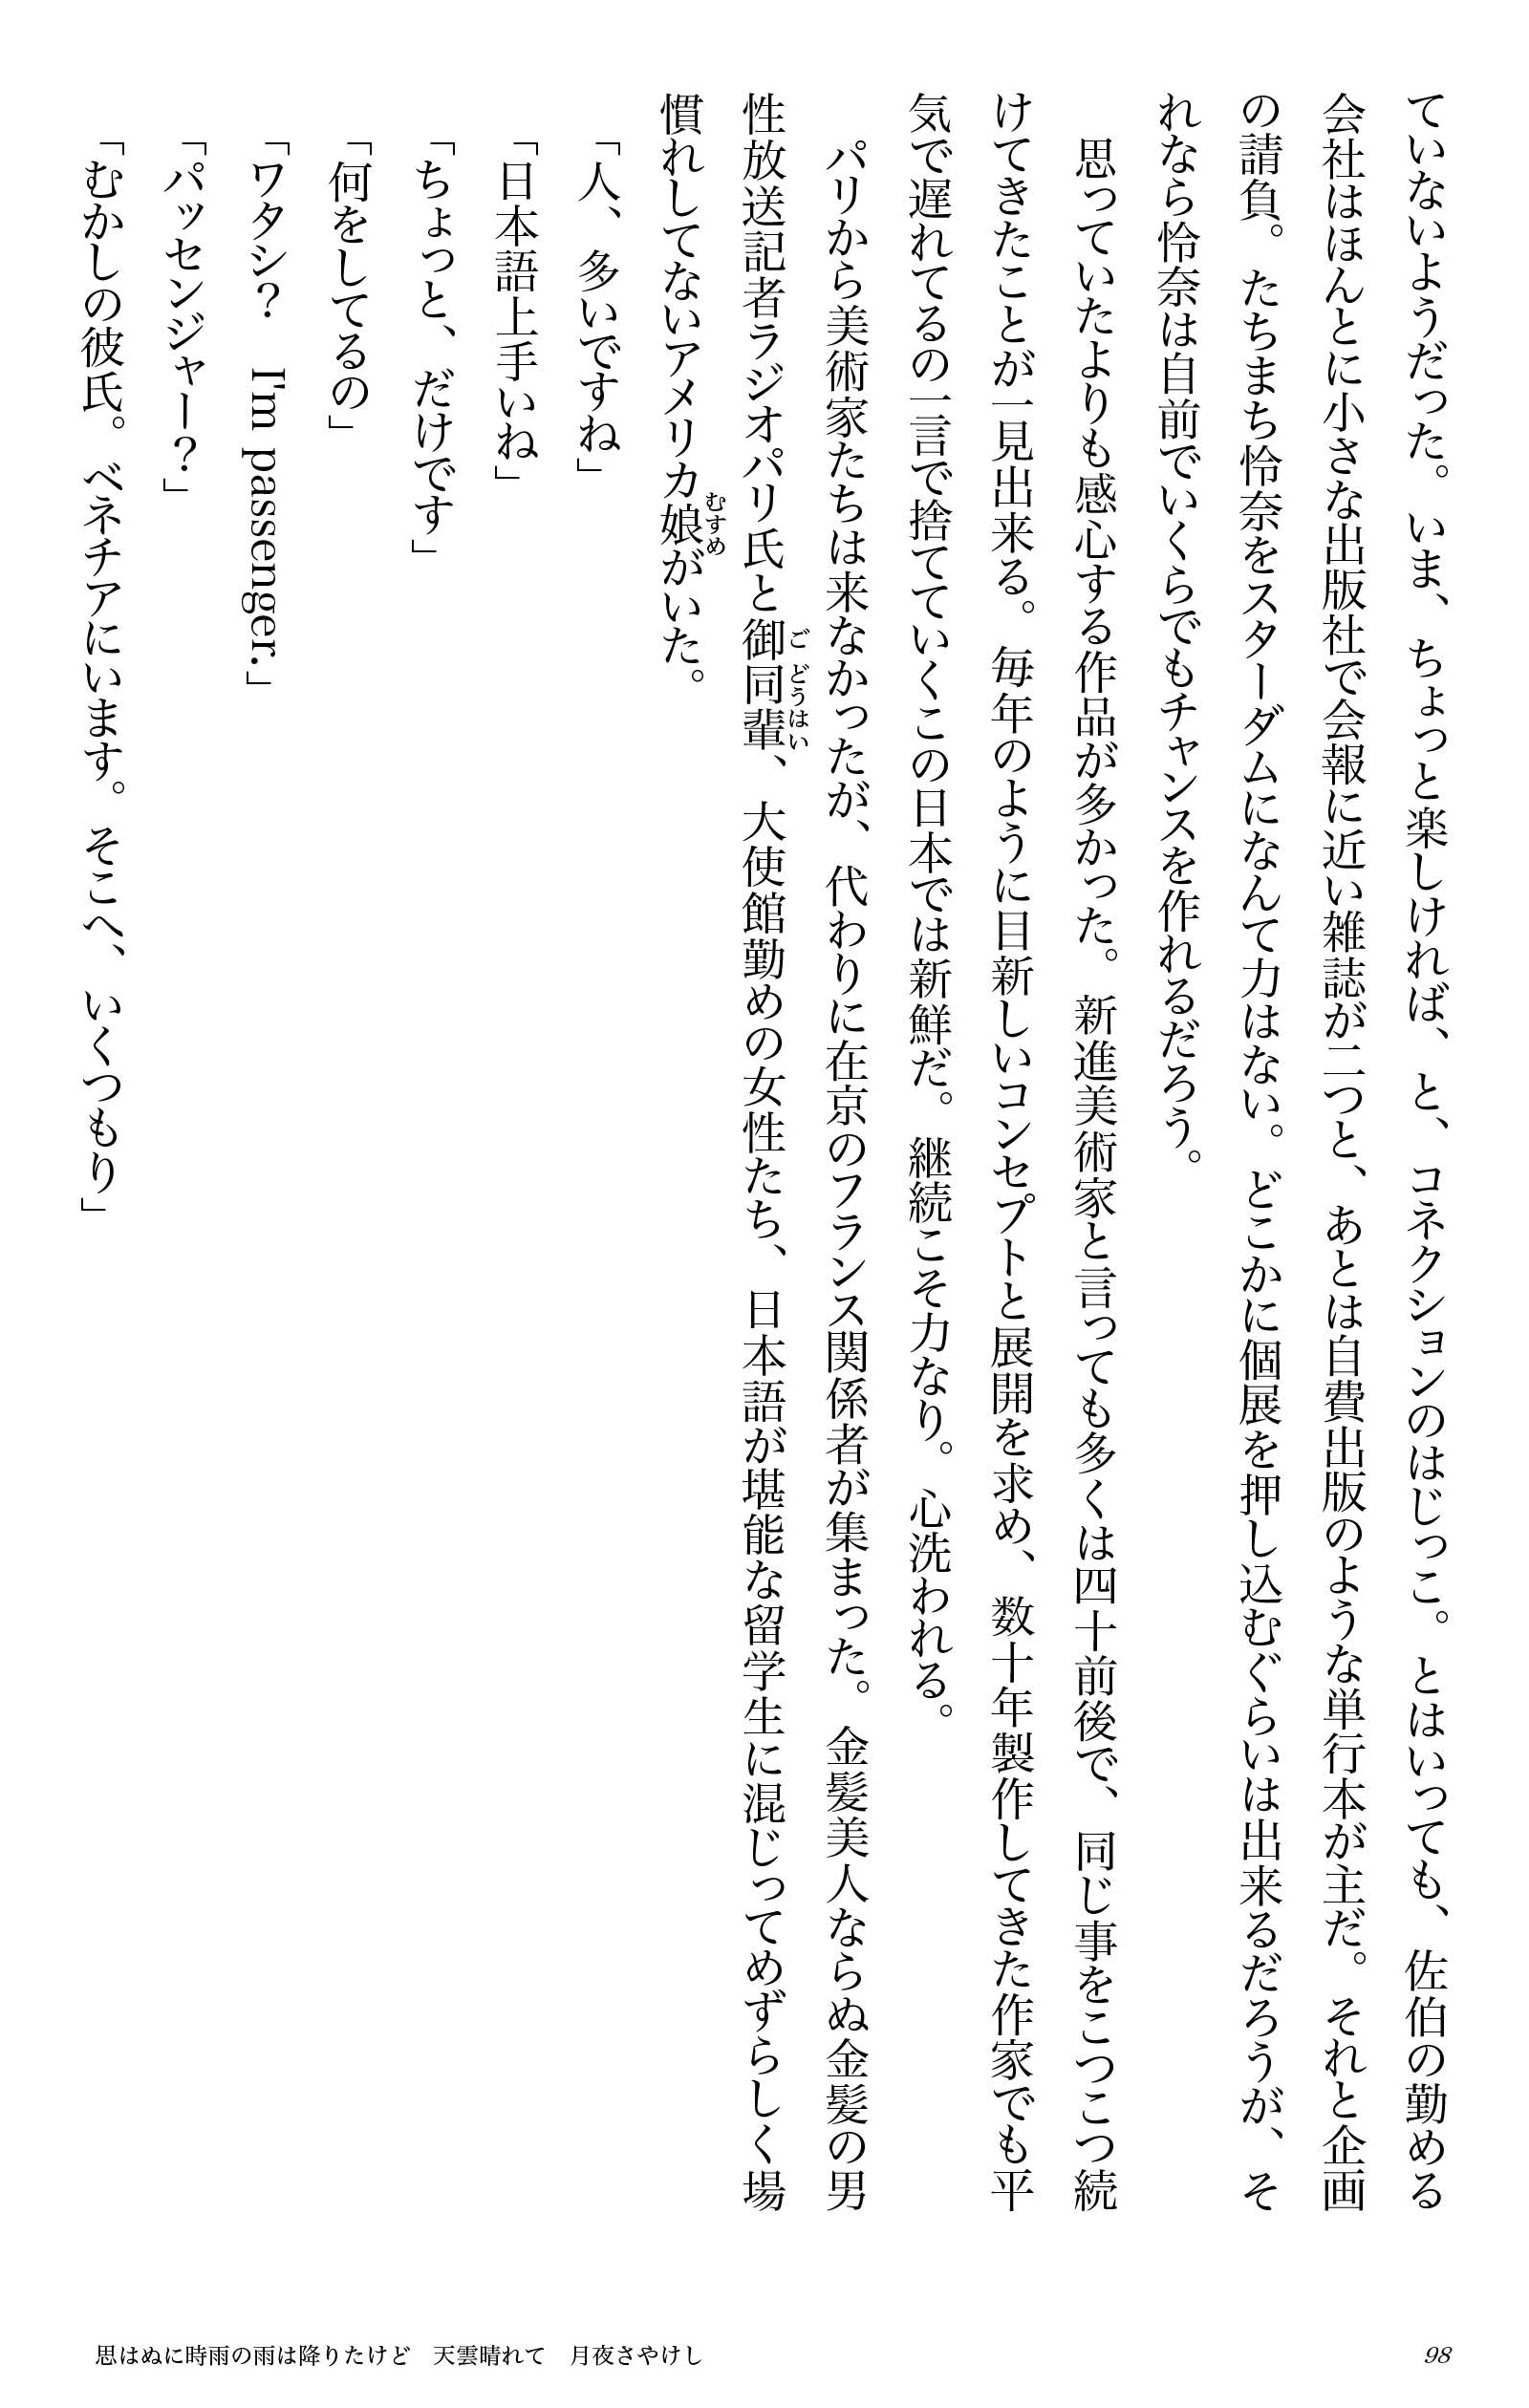 ていないようだった。いま、ちょっと楽しければ、と、コネクションのはじっこ。とはいっても、佐伯の勤める
会社はほんとに小さな出版社で会報に近い雑誌が二つと、あとは自費出版のような単行本が主だ。それと企画
の請負。たちまち怜奈をスターダムになんて力はない。どこかに個展を押し込むぐらいは出来るだろうが、そ
れなら怜奈は自前でいくらでもチャンスを作れるだろう。
　思っていたよりも感心する作品が多かった。新進美術家と言っても多くは四十前後で、同じ事をこつこつ続
けてきたことが一見出来る。毎年のように目新しいコンセプトと展開を求め、数十年製作してきた作家でも平
気で遅れてるの一言で捨てていくこの日本では新鮮だ。継続こそ力なり。心洗われる。
　パリから美術家たちは来なかったが、代わりに在京のフランス関係者が集まった。金髪美人ならぬ金髪の男
性放送記者ラジオパリ氏と御同輩、大使館勤めの女性たち、日本語が堪能な留学生に混じってめずらしく場
ごどうはい
慣れしてないアメリカ娘がいた。
むすめ
「人、多いですね」
「日本語上手いね」
「ちょっと、だけです」
「何をしてるの」
「ワタシ？　I'm passenger.」
「パッセンジャー？」
「むかしの彼氏。ベネチアにいます。そこへ、いくつもり」
思はぬに時雨の雨は降りたけど　天雲晴れて　月夜さやけし
98